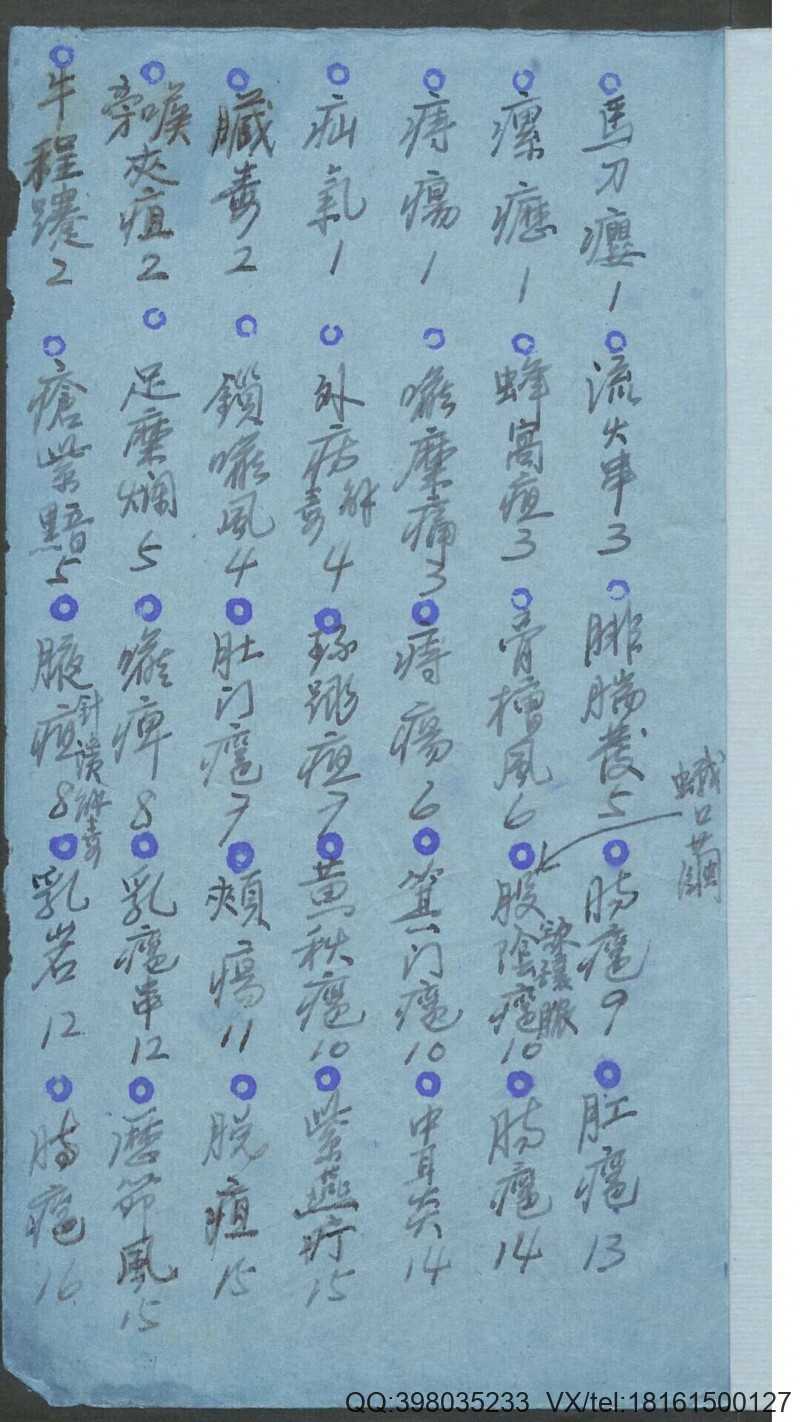 馬刀癭1
瘰癧1
痔瘍1
疝氣1
臟毒2
旁喉夾疽2
牛程蹇2
流火串3
蜂窩疽3
喉糜痛3
外疠 解毒4
鎖喉風4
足糜爛5
瘡紫黯5
腓腨發5
骨槽風6
痔瘍6
琢踝疽7
肚门癰7
喉痺8
腋疽8
針潰 解毒
蛾口
腸癰9
股陰癰10
箕门癰10
黄秋癰10
頰瘍11
乳癰串12
乳岩12
肛癰13
腸癰14
中耳炎14
紫燕疔15
脱疽15
歷節風15
肺癰16
QQ:398035233 VX/tel:18161500127